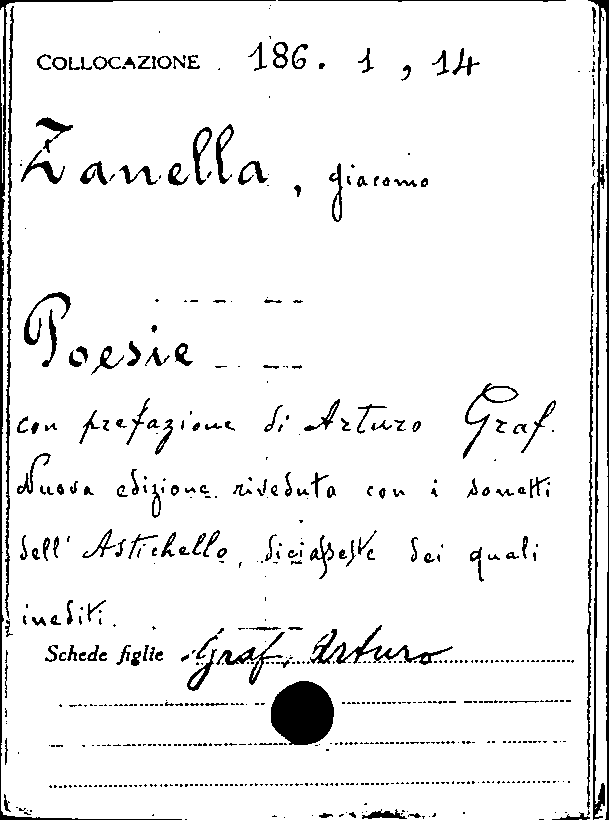 COLLOCAZIONE 186. 1, 14
Zanella, Giacomo
Poesie
con prefazione di Arturo Graf.
Nuova edizione riveduta con i sonetti
dell' Astichello, diciassette dei quali
inediti.
Schede figlie Graf, Arturo